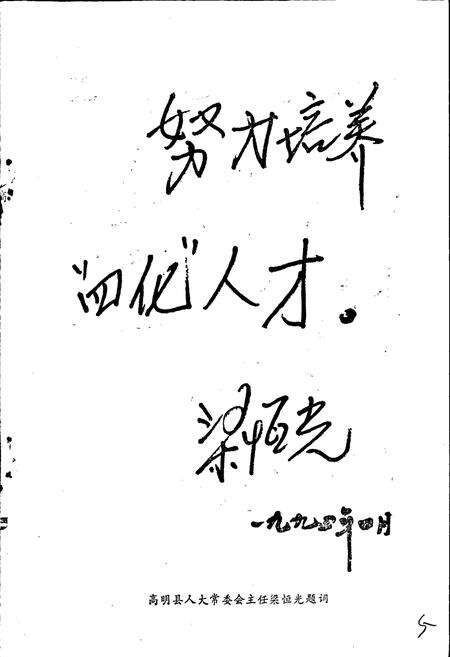 努力培养
“四化”人才.
梁恒光
一九九四年四月
高明县人大常委会主任梁恒光题词
5